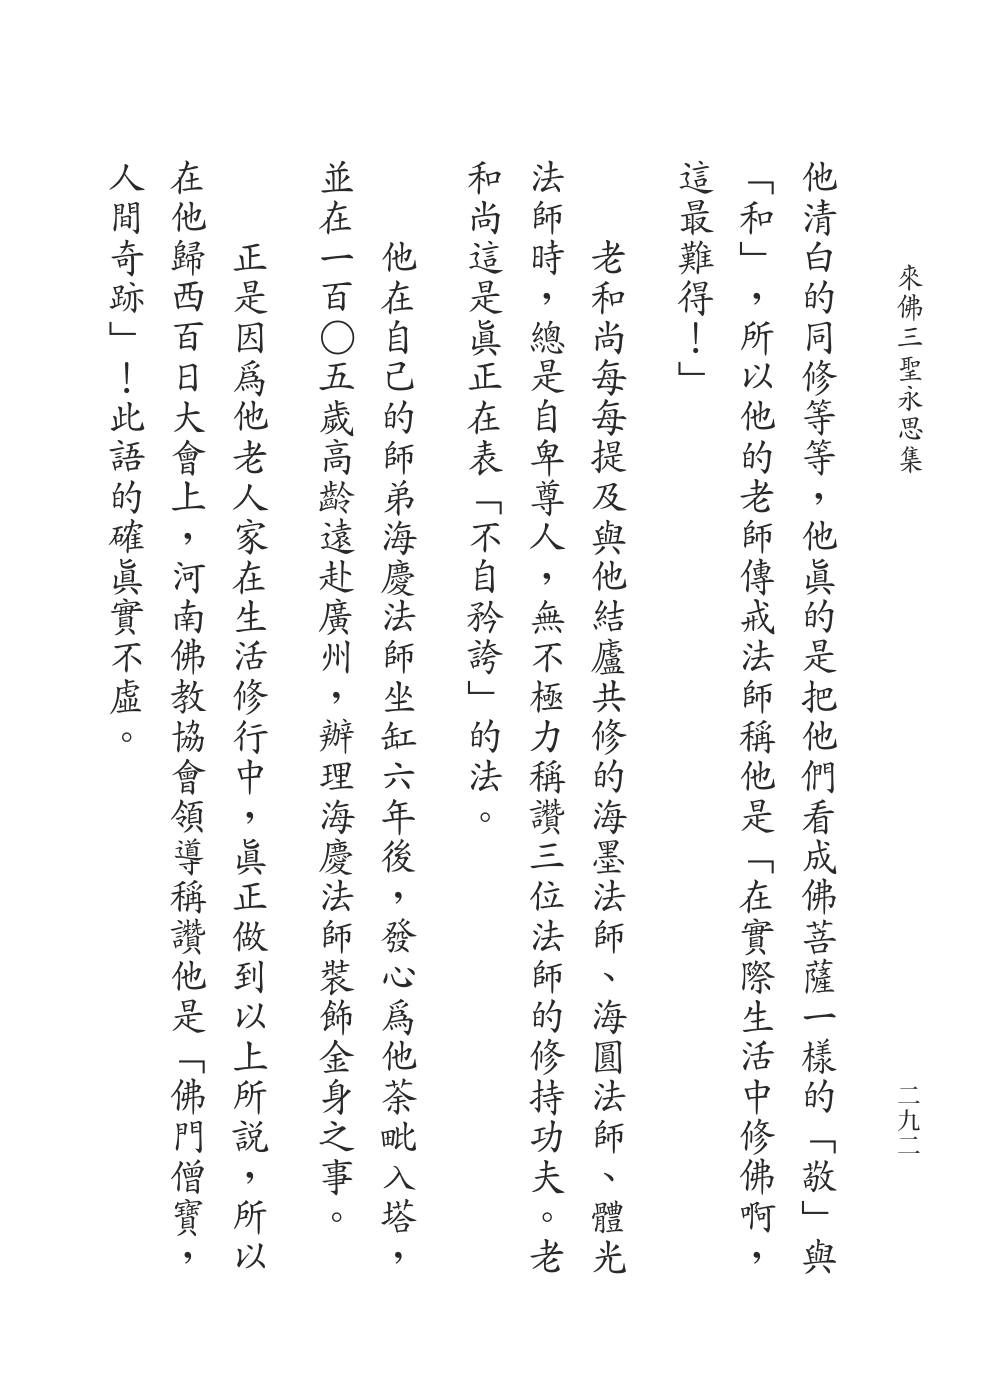 來佛三聖永思集
二九二
他清白的同修等等，他眞的是把他們看成佛菩薩一樣的「敬」與
「和」，所以他的老師傳戒法師稱他是「在實際生活中修佛啊，
這最難得！」
老和尚每每提及與他結廬共修的海墨法師、海圓法師、體光
法師時，總是自卑尊人，無不極力稱讚三位法師的修持功夫。老
和尚這是眞正在表「不自矜誇」的法。
他在自己的師弟海慶法師坐缸六年後，發心爲他荼毗入塔，
並在一百〇五歲高齡遠赴廣州，辦理海慶法師裝飾金身之事。
正是因爲他老人家在生活修行中，眞正做到以上所説，所以
在他歸西百日大會上，河南佛教協會領導稱讚他是「佛門僧寶，
人間奇跡」！此語的確眞實不虛。